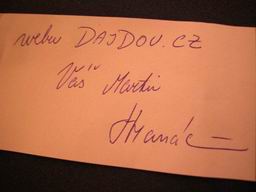 webu DAJDOU.CZ
Váš Martin
Hranáč